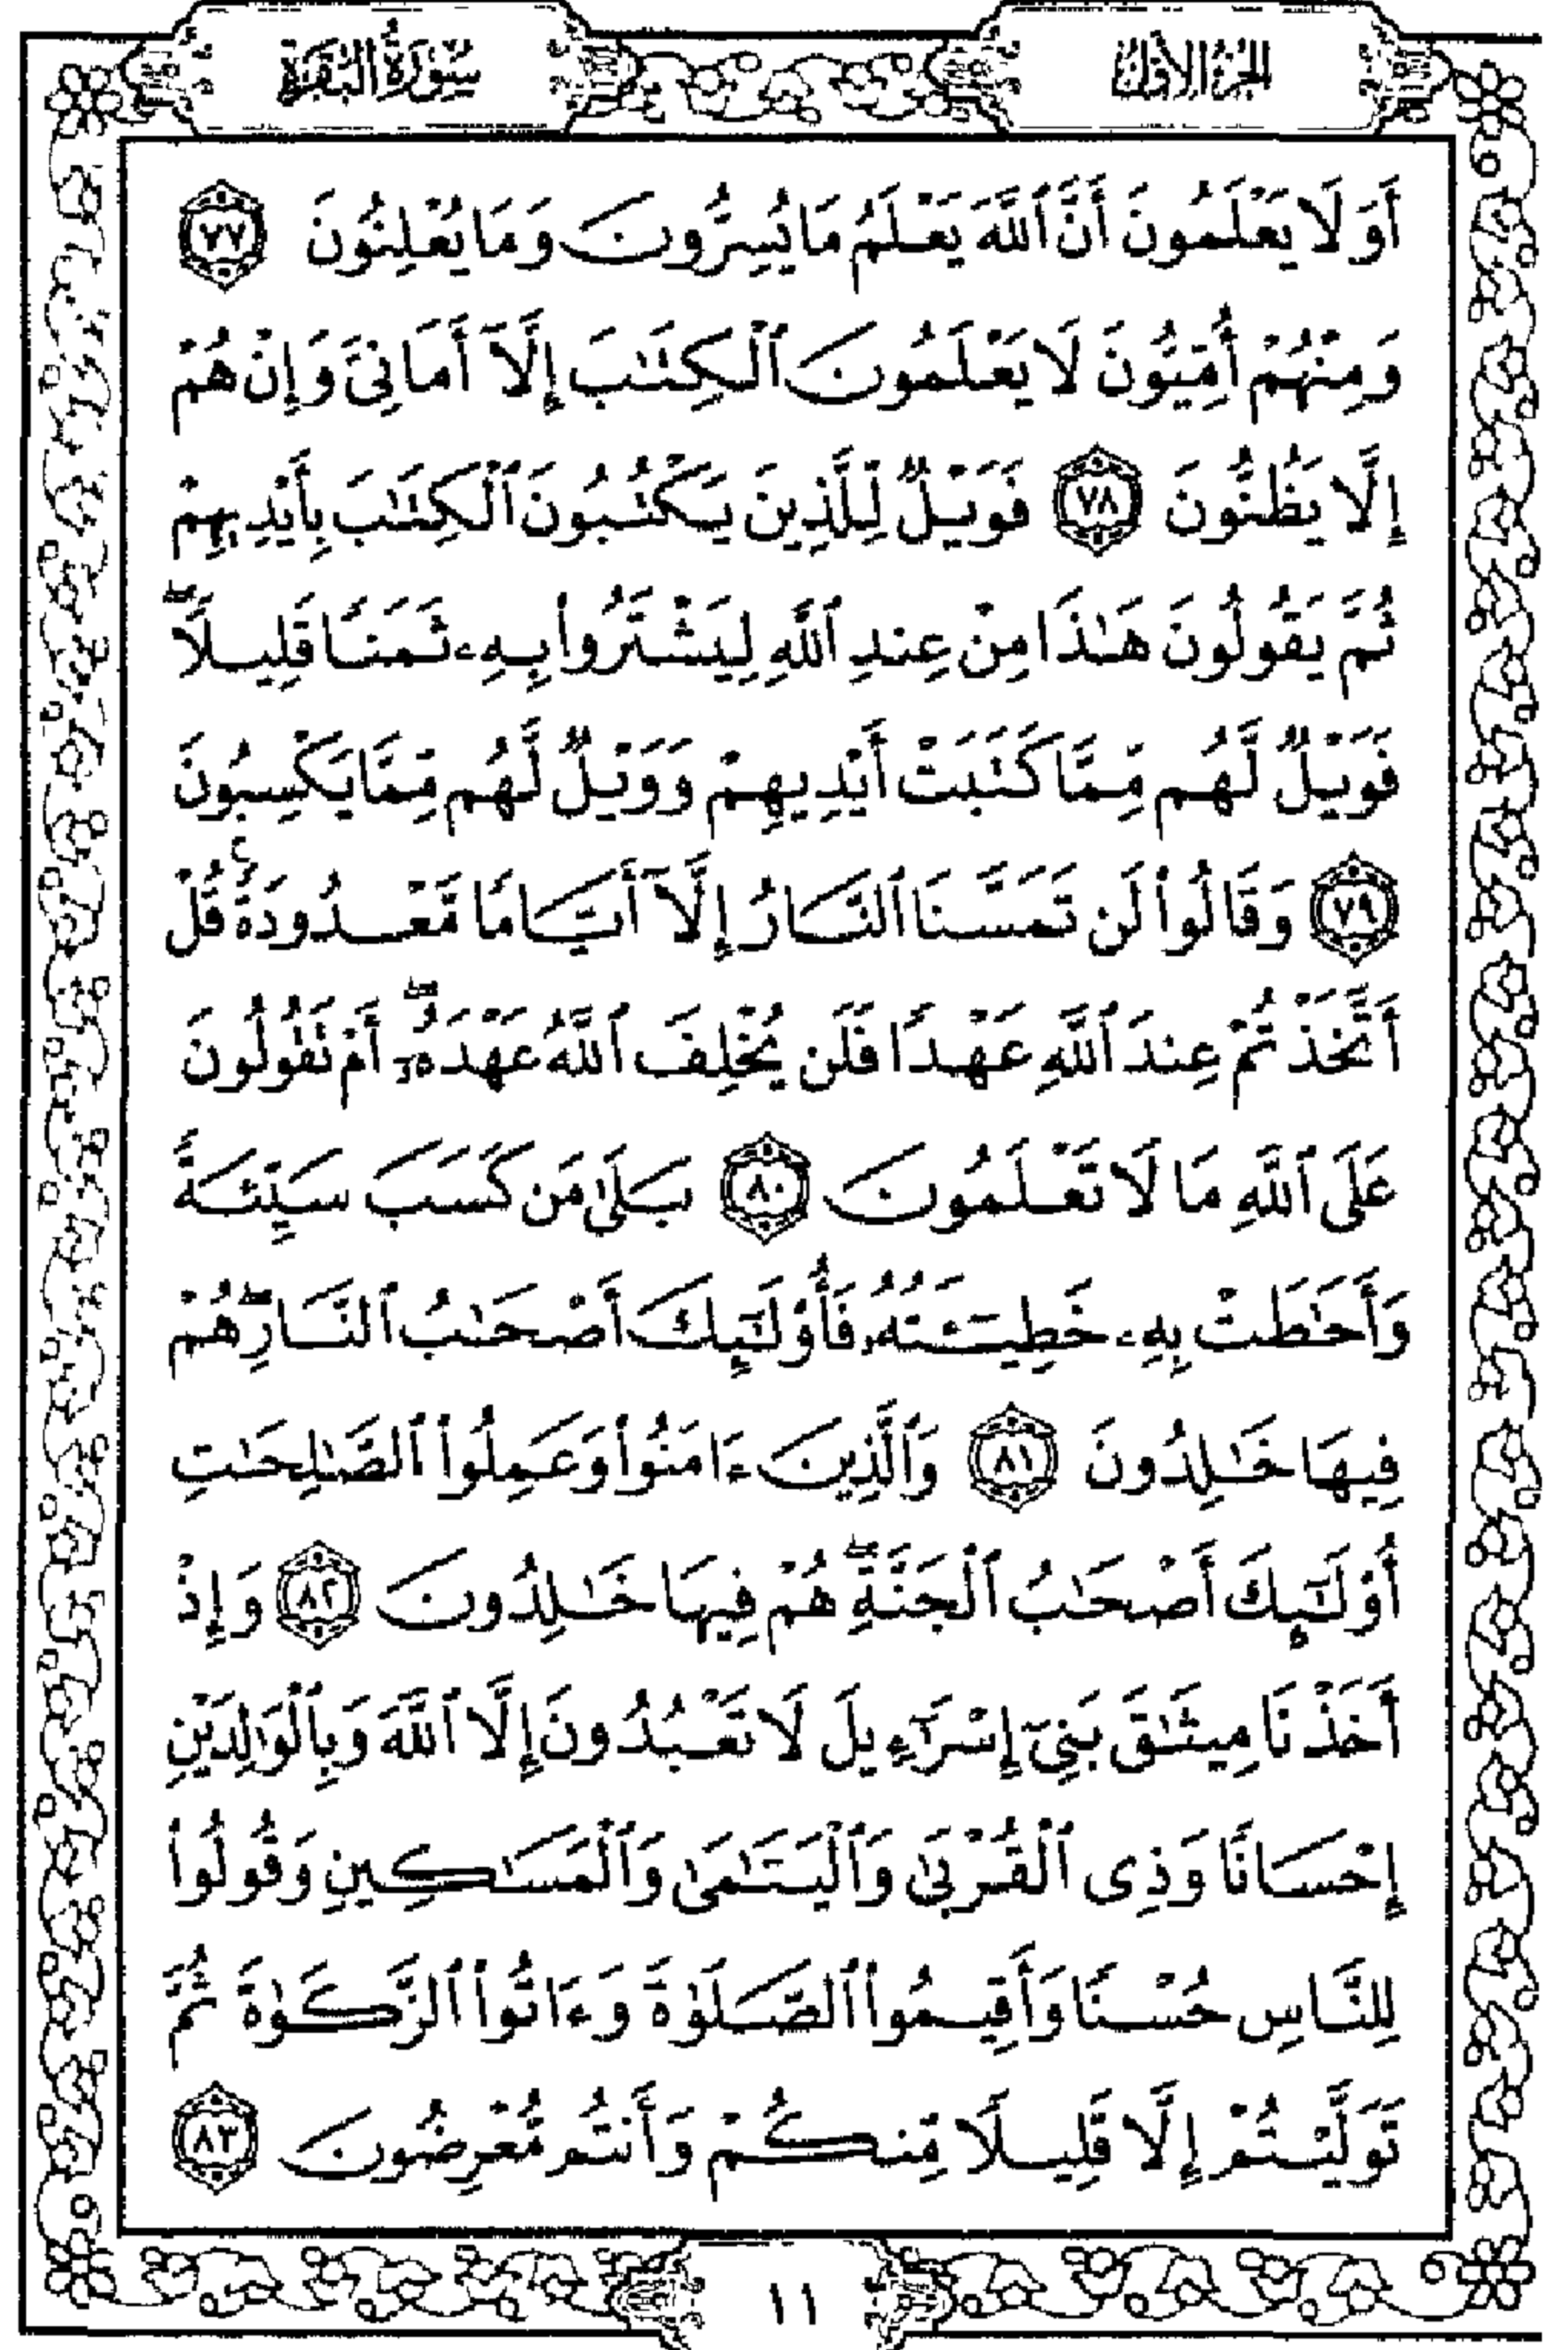 الجزء الأول
سورة البقرة
أَوَلَا يَعْلَمُونَ أَنَّ ٱللَّهَ يَعْلَمُ مَا يُسِرُّونَ وَمَا يُعْلِنُونَ ٧٧
وَمِنْهُمْ أُمِّيُّونَ لَا يَعْلَمُونَ ٱلْكِتَٰبَ إِلَّآ أَمَانِىَّ وَإِنْ هُمْ
إِلَّا يَظُنُّونَ ٧٨ فَوَيْلٌ لِّلَّذِينَ يَكْتُبُونَ ٱلْكِتَٰبَ بِأَيْدِيهِمْ
ثُمَّ يَقُولُونَ هَٰذَا مِنْ عِندِ ٱللَّهِ لِيَشْتَرُوا۟ بِهِۦ ثَمَنًا قَلِيلًا ۖ
فَوَيْلٌ لَّهُم مِّمَّا كَتَبَتْ أَيْدِيهِمْ وَوَيْلٌ لَّهُم مِّمَّا يَكْسِبُونَ
٧٩ وَقَالُوا۟ لَن تَمَسَّنَا ٱلنَّارُ إِلَّآ أَيَّامًا مَّعْدُودَةً ۚ قُلْ
أَتَّخَذْتُمْ عِندَ ٱللَّهِ عَهْدًا فَلَن يُخْلِفَ ٱللَّهُ عَهْدَهُۥٓ ۖ أَمْ تَقُولُونَ
عَلَى ٱللَّهِ مَا لَا تَعْلَمُونَ ٨٠ بَلَىٰ مَن كَسَبَ سَيِّئَةً
وَأَحَٰطَتْ بِهِۦ خَطِيٓـَٔتُهُۥ فَأُو۟لَٰٓئِكَ أَصْحَٰبُ ٱلنَّارِ ۖ هُمْ
فِيهَا خَٰلِدُونَ ٨١ وَٱلَّذِينَ ءَامَنُوا۟ وَعَمِلُوا۟ ٱلصَّٰلِحَٰتِ
أُو۟لَٰٓئِكَ أَصْحَٰبُ ٱلْجَنَّةِ ۖ هُمْ فِيهَا خَٰلِدُونَ ٨٢ وَإِذْ
أَخَذْنَا مِيثَٰقَ بَنِىٓ إِسْرَٰٓءِيلَ لَا تَعْبُدُونَ إِلَّا ٱللَّهَ وَبِٱلْوَٰلِدَيْنِ
إِحْسَانًا وَذِى ٱلْقُرْبَىٰ وَٱلْيَتَٰمَىٰ وَٱلْمَسَٰكِينِ وَقُولُوا۟
لِلنَّاسِ حُسْنًا وَأَقِيمُوا۟ ٱلصَّلَوٰةَ وَءَاتُوا۟ ٱلزَّكَوٰةَ ثُمَّ
تَوَلَّيْتُمْ إِلَّا قَلِيلًا مِّنكُمْ وَأَنتُم مُّعْرِضُونَ ٨٣
١١